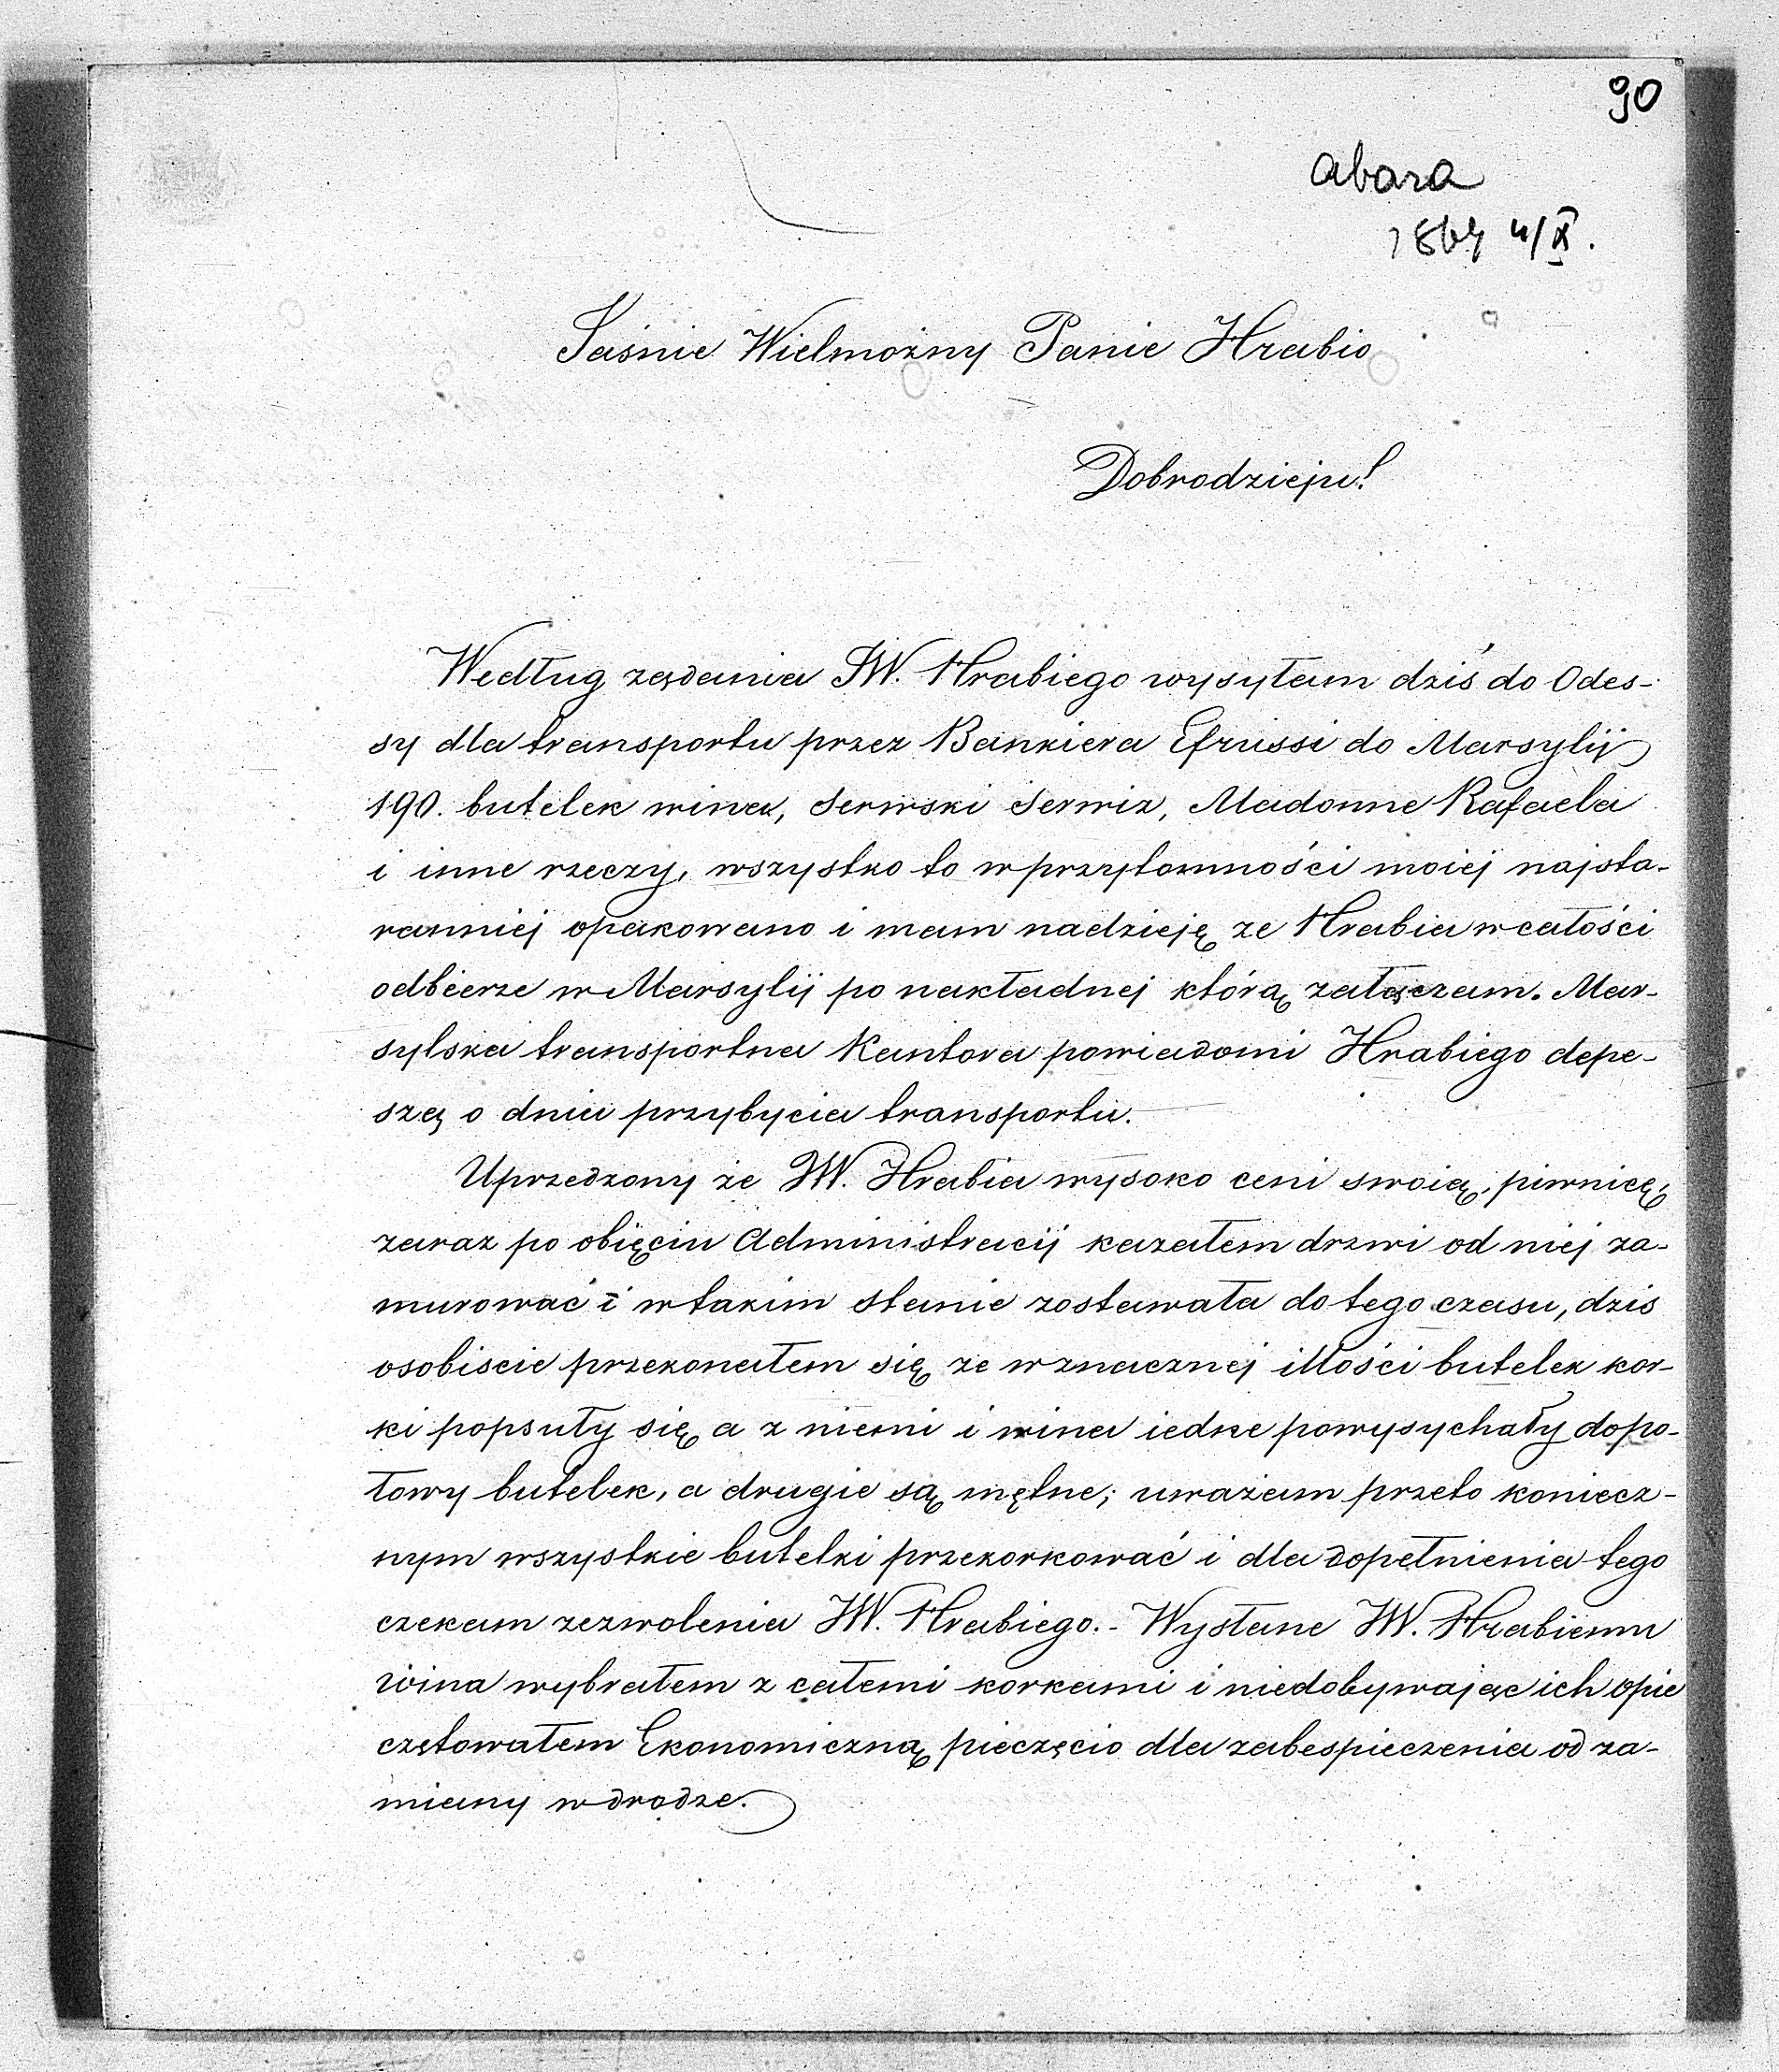 90
Abaza
1864 4/X.
Jaśnie Wielmożny Panie Hrabio
Dobrodzieju!
Według ząдania JW. Hrabiego wysyłam dziś do Odes-
sy dla transportu przez Bankiera Efrussi do Marsylij
190. butelek wina, serwski serwiz, Madonne Rafaela
i inne rzeczy, wszystko to w przytomności moiej najsta-
ranniej opakowano i mam nadzieję ze Hrabia w całości
odbierze w Marsylij po nakładnej którą załączam. Mar-
sylska transportna Kantora powiadomi Hrabiego depe-
szą o dniu przybycia transportu.
Uprzedzony że JW. Hrabia wysoko ceni swoią piwnicę,
zaraz po obięciu Administracij kazałem drzwi od niej za-
murować i w takim stanie zostawała do tego czasu, dzis
osobiscie przekonałem się ze w znacznej illości butelek kor-
ki popsuły się a z niemi i wina iedne powysychały do po-
łowy butelek, a drugie są mętne; uważam przeto koniecz-
nym wszystkie butelki przekorkować i dla dopełnienia tego
czekam zezwolenia JW. Hrabiego. - Wysłane JW. Hrabiemu
wina wybrałem z całemi korkami i niedobywając ich opie
czętowałem Ekonomiczną pieczęcio dla zabespieczenia od za-
miany w drodze.